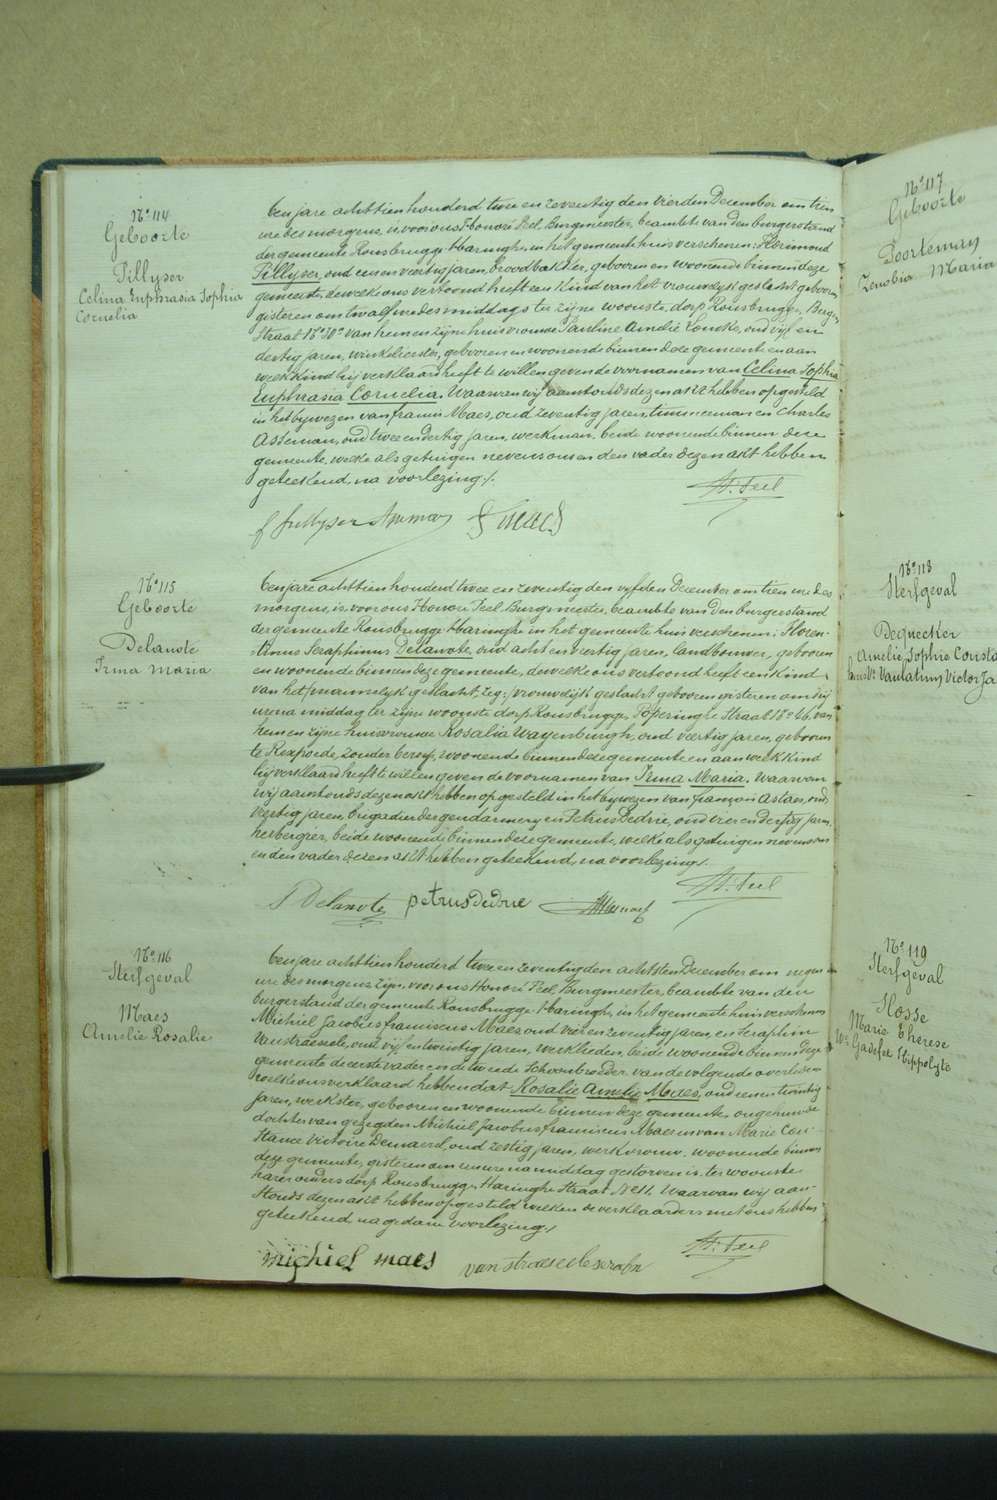 N° 114
Geboorte
Pillyser
Celina Euphrasia Sophia
Cornelia
Ten jare achttien honderd twee en zeventig den vierden December om tien
ure des morgens, is voor ons Honoré Peel Burgmeester, beambte van den burgerstand
der gemeente Rousbrugge-Haringhe, in het gemeentehuis verschenen: Florimond
Pillyser, oud een en veertig jaren, broodbakker, geboren en woonende binnen deze
gemeente, dewelke ons vertoond heeft een kind van het vrouwelijk geslacht geboren
gisteren om twaalf ure des middags te zijne woonste, dorp Rousbrugge, Berg
Straat N° 20, van hem en zijne huisvrouwe Pauline Amelie, oud vijf en
dertig jaren, winkelierster, geboren en woonende binnen deze gemeente en aan
welk kind hij verklaard heeft te willen geven de voornamen van Celina Sophia
Euphrasia Cornelia. Waarvan wij aanstonds dezen akt hebben opgesteld
in het bijwezen van francis Maes, oud zeventig jaren, timmerman en Charles
Asseman, oud twee en dertig jaren, werkman, beide woonende binnen deze
gemeente, welke als getuigen nevens ons en den vader dezen akt hebben
geteekend, na voorlezing./.
H. Peel
f pillyser Asseman f maes
N° 115
Geboorte
Delanote
Irma Maria
Ten jare achttien honderd twee en zeventig den vijfden December om tien ure des
morgens, is voor ons Honoré Peel Burgmeester, beambte van den burgerstand
der gemeente Rousbrugge-Haringhe in het gemeentehuis verschenen: Floren-
tinus Seraphinus Delanote, oud acht en veertig jaren, landbouwer, geboren
en woonende binnen deze gemeente, dewelke ons vertoond heeft een kind
van het mannelijk geslacht, zeg: vrouwelijk geslacht geboren gisteren om vijf
ure na middag ter zijne woonste dorp Rousbrugge, Poperinghe Straat N° 26, van
hem en zijne huisvrouwe Rosalia Wayenburgh, oud veertig jaren, geboren
te Rexpoede, zonder beroep, woonende binnen deze gemeente en aan welk kind
hij verklaard heeft te willen geven de voornamen van Irma Maria. Waarvan
wij aanstonds dezen akt hebben opgesteld in het bijwezen van françois Astaes, oud
veertig jaren, brigadier der gendarmery en Petrus Dedrie, oud vier en dertig jaren,
herbergier, beide woonende binnen deze gemeente, welke als getuigen nevens ons
en den vader dezen akt hebben geteekend, na voorlezing./.
H. Peel
S Delanote petrus dedrie
N° 116
Sterfgeval
Maes
Amelie Rosalie
Ten jare achttien honderd twee en zeventig den achtsten December om negen
ure des morgens zijn voor ons Honoré Peel Burgmeester, beambte van den
burgerstand der gemeente Rousbrugge-Haringhe, in het gemeentehuis verschenen
Michiel Jacobus franciscus Maes oud vier en zeventig jaren, en Seraphin
Vanstraeseele, oud vijf en twintig jaren, werklieden, beide woonende binnen deze
gemeente de eerste vader en de tweede Schoonbroeder van de volgende overledene
welke ons verklaard hebben dat Rosalie Amelie Maes, oud een en twintig
jaren, werkster, geboren en woonende binnen deze gemeente, ongehuwde
dochter van gezegden Michiel Jacobus franciscus Maes en van Marie Con-
stance Victoire Demaerel, oud zestig jaren, werkvrouw, woonende binnen
deze gemeente, gisteren om een ure namiddag gestorven is, ter woonste
harer ouders dorp Rousbrugge, Haringhe Straat N° 11. Waarvan wij aan-
stonds dezen akt hebben opgesteld welken de verklaarders met ons hebben
geteekend, na gedane voorlezing./
H. Peel
michiel maes van straeseele serafin
N° 117
Geboorte
Poorteman
Zenobia Maria
N° 118
Sterfgeval
Dequecker
Amelie Sophie Consta
Vanlatum Victor Ja
N° 119
Sterfgeval
Hosse
Marie Therese
We Gadefet Hippolyte